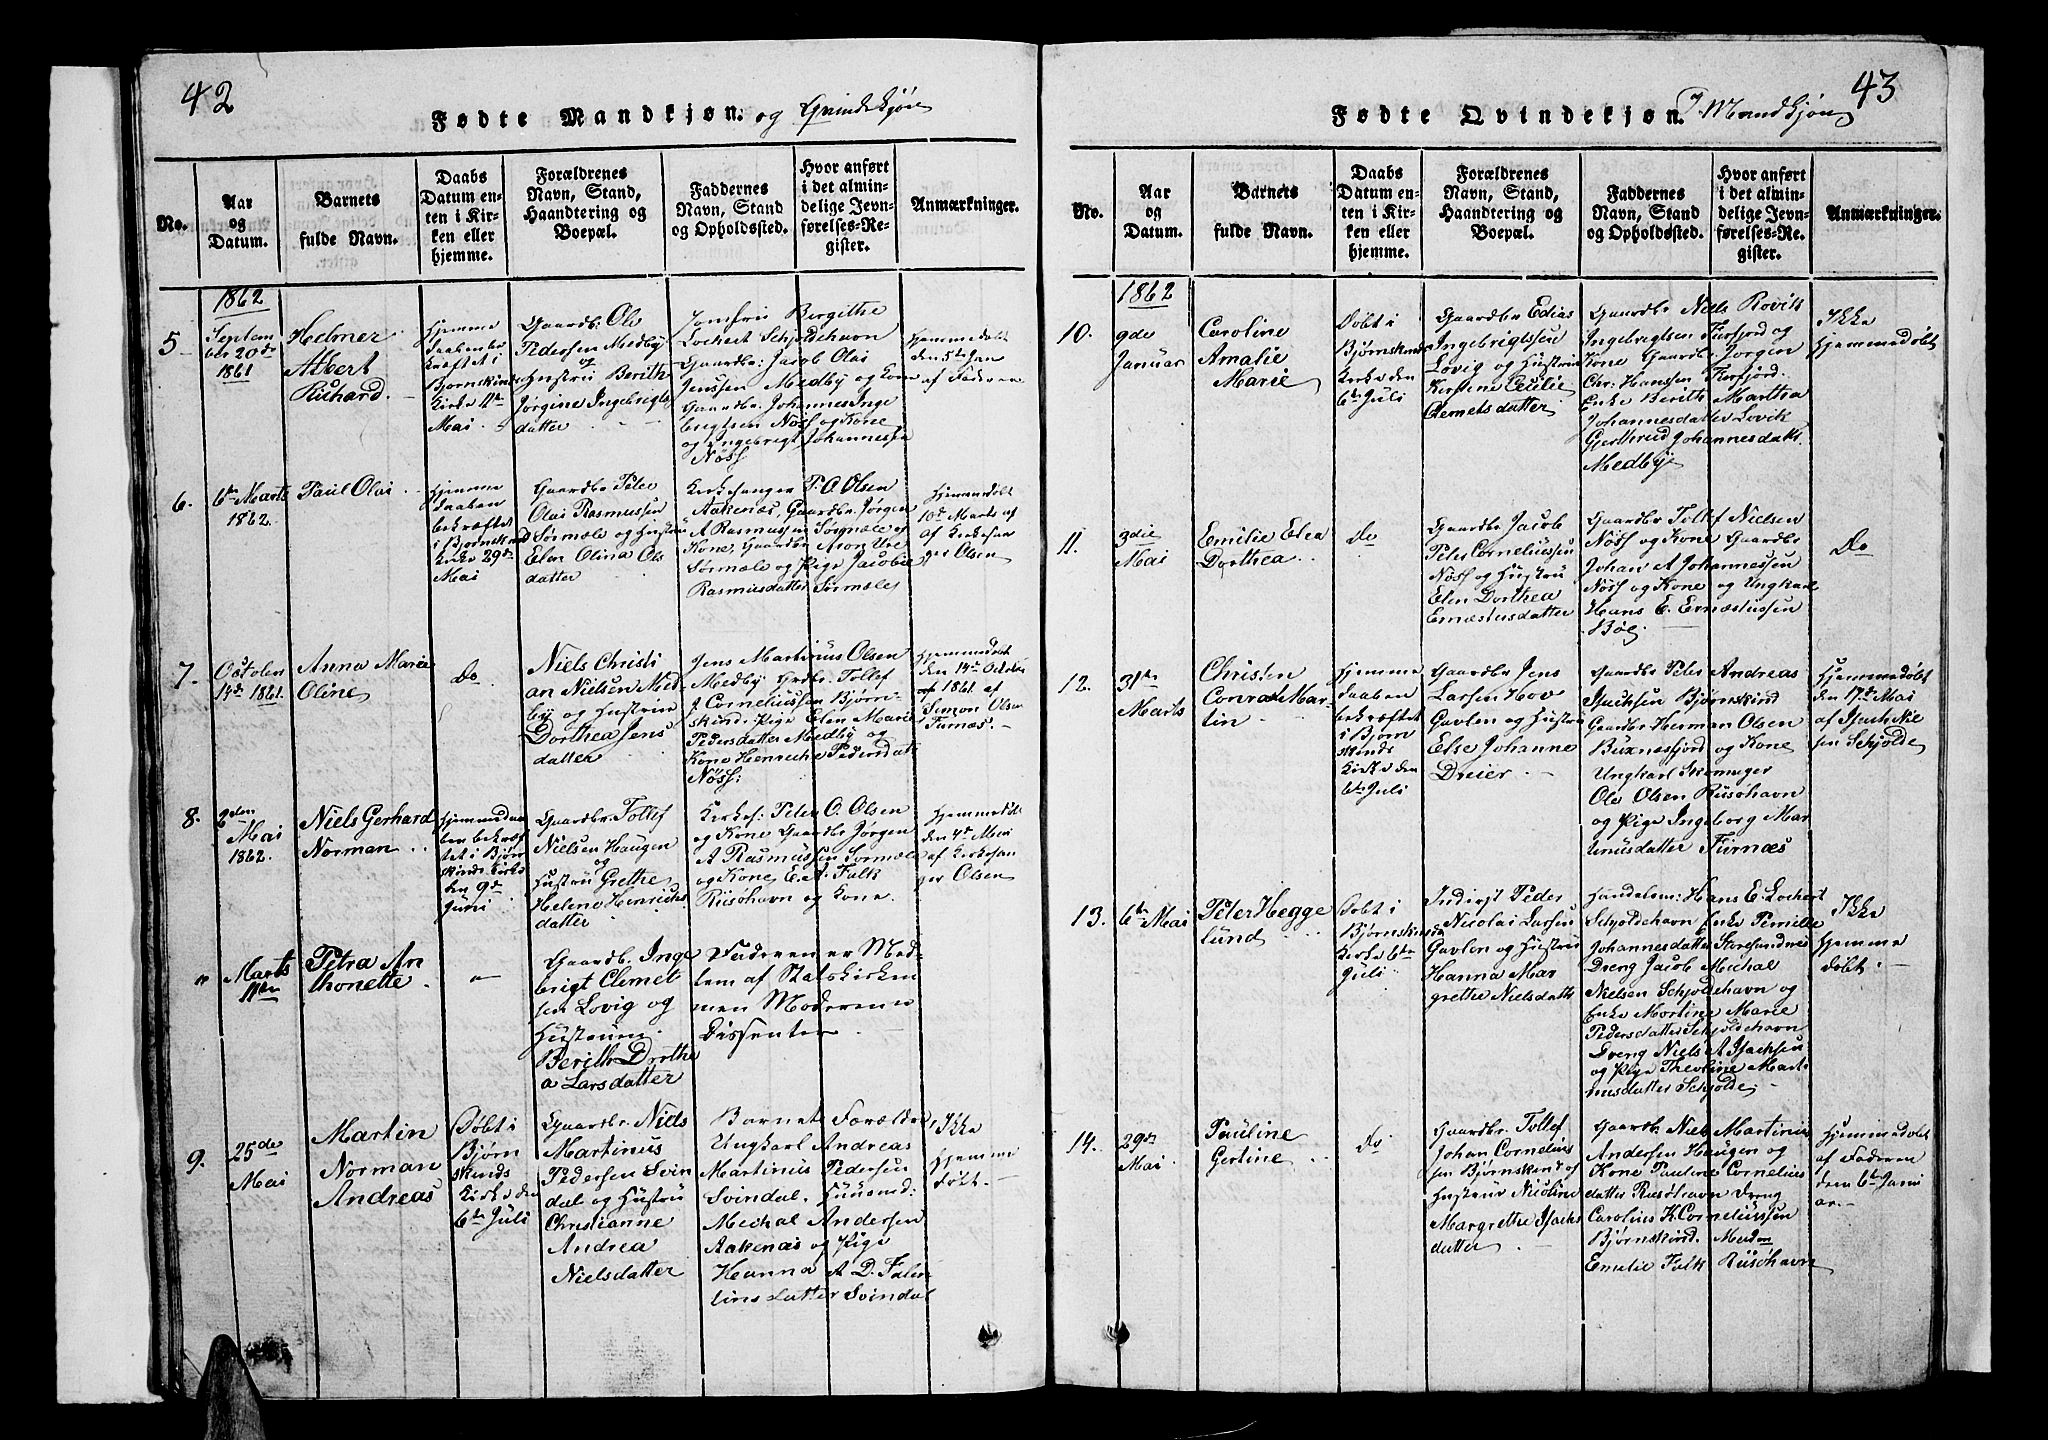 42
Fødte Mandkjøn. og Qvindekjøn
No.
Aar og Datum.
Barnets fulde Navn.
Daabs Datum enten i Kirken eller hjemme.
Forældrenes Navn, Stand, Haandtering og Boepæl.
Faddernes Navn, Stand og Opholdssted.
Hvor anført i det almindelige Jevnførelses-Register.
Anmærkninger.
1862
5
Septem
ber 20de
1861
Helmer
Albert
Richard.
Hjemme
daaben be
kræftet i
Bjørnskinds
Kirke 11te
Mai.
Gaardb: Ole
Pedersen Medby
og
Hustru Berith
Jørgine Ingebrigts
datter
Jomfru Birgithe
Lochert Schjoldehavn
Gaardbr: Jacob Olai
Jenssen Medby og Kone
Gaardbr: Johannes Inge
brigtsen Nöss og Kone
og Ingebrigt Johannessen
Nöss
Hjemmedøbt
den 5te Jan
af Faderen
6.
6te Marts
1862.
Paul Olai
Hjemme
daaben
bekræftet
i Bjørnskinds
Kirke 29de
Mai
Gaardbr Peter
Olai Rasmussen
Sørmæle og Hustru
Elen Olina Ols
datter
Kirkesanger P. O. Olsen
Aakenæs, Gaardbr. Jørgen
A Rasmussen Sørmæle og
Kone, Gaardbr Aron Ure
Sørmæle og Pige Jacobie
Rasmusdatter Sørmæle
Hjemmedøbt
10de Marts af
af Kirkesan
ger Olsen
7.
October
14de 1861.
Anna Marie
Oline
Do
Niels Christi
an Nielsen Med
by og Hustru
Dorthea Jens
datter
Jens Martinus Olsen
Medby Grdbr. Tollef
J. Corneliussen Bjørn
skind: Pige Elen Marie
Pedersdatter Medby og
Kone Henriche Pedersdat
Nöss:
Hjemmedøbt
den 14de October
1861 af
Simon Olsen
Furnæs.
8.
2den
Mai
1862.
Niels Gerhard
Norman
Hjemmedaa
ben bekræf
tet i Bjørn
skinds Kirke
den 9de
Juni
Gaardbr Tollef
Nielsen Haugen
og
Hustru Grethe
Helene Henrichs
datter
Kirkes: Peter O. Olsen
og Kone Gaardbr Jørgen
A Rasmussen Sørmæle
og Kone E. A. Falk
Risøhavn og Kone.
Hjemmedøbt
den 4de Mai
af Kirkesan
ger Olsen
"
Marts
11te
Petra An
thonette.
Gaardb. Inge
brigt Clemet
sen Lovig og
Hustru
Berith Dorthe
a Larsdatter
Faderen er Med
lem af Statskirken
men Moderen
Dissenter
9.
25de
Mai
Martin
Norman
Andreas
Døbt i
Bjørn
skinds
Kirke den
6te Juli
Gaardbr. Niels
Martinus
Pedersen Svin
dal og Hustru
Christianne
Andrea
Nielsdatter
Barnet Forældre,
Ungkarl Andreas
Martinus Pedersen
Svindal. Huusmd:
Michal Andersen
Aakenæs og Pige
Hanna A D. Falen
tinsdatter Svindal
Ikke
hjemme
døbt.
43
Fødte Qvindekjøn. Mandkjøn
No.
Aar og Datum.
Barnets fulde Navn.
Daabs Datum enten i Kirken eller hjemme.
Forældrenes Navn, Stand, Haandtering og Boepæl.
Faddernes Navn, Stand og Opholdssted.
Hvor anført i det almindelige Jevnførelses-Register.
Anmærkninger.
1862
10.
9de
Januar
Caroline
Amalie
Marie
Døbt i
Bjørnskinds
Kirke den
6te Juli
Gaardbr Edias
Ingebrigtsen
Lovig og Hustru
Kirstine Cecilie
Clemetsdatter
Gaardbr Niels
Ingebrigtsen Forfjord og
Kone Gaardbr. Jorgen
Chr. Hansen Forfjord.
Enke Berith Martha
Johannesdatter Lovik
Gjertrud Johannesdatr
Medby
Ikke
hjemmedøbt
11.
3die
Mai
Emilie Elea
Dorthea
do
Gaardbr Jacob
Peter Corneliussen
Nöss og Hustru
Elen Dorthea
Ernæstusdatter
Gaardbr Tollef Nielsen
Nöss og Kone Gaardbr
Johan A Johannessen
Nöss og Kone og Ungkarl
Hans E. Ernæstussen
Bøe
Do
12.
31te
Marts
Christen
Conrad Mar
tin
Hjemme
daaben
bekræftet
i Bjørn
skinds
Kirke den
6te Juli
Gaardbr Jens
Larsen Hov
Gavlen og Hustru
Else Johanne
Dreier
Gaardbr Peter Andreas
Isachsen Bjørnskind
Gaardbr Herman Olsen
Buxnæsfjord og Kone
Ungkarl Skomager
Ole Olsen Risøhavn
og Pige Ingeborg Mar
tinusdatter Furnæs
Hjemmedøbt
den 17de Mai
af Isach Niel
sen Schjolde
13.
6te Mai
Peter Hegge
lund
Døbt i
Bjørnskinds
Kirke 6te
Juli
Indirst Peder
Nicolai Larsen
Gavlen og Hustru
Hanna Mar
grethe Nielsdatr
Handelsm: Hans E. Lochert
Schjoldehavn Enke Pernille
Johannesdatter
Dreng Jacob Michal
Nielsen Schjoldehavn og
Enke Mortine Marie
Pedersdatter Schjoldehavn
Dreng Niels A Isachsen
og Pige Theoline Mart
inusdatter Schjolde
Ikke
hjemme
døbt.
14.
29de
Mai
Pauline
Gertine
do
Gaardbr. Tollef
Johan Cornelius
sen Bjørnskind og
Hustrue Nicoline
Margrethe Isachs
datter
Gaardb Niels Martinus
Andersen Haugen og
Kone Pauline Cornelius
datter Risøhavn Dreng
Carolius K. Corneliussen
Bjørnskind. Madam
Emelie Falk Risøhavn
Hjemmedøbt
af Faderen
den 6te Janu
ar.